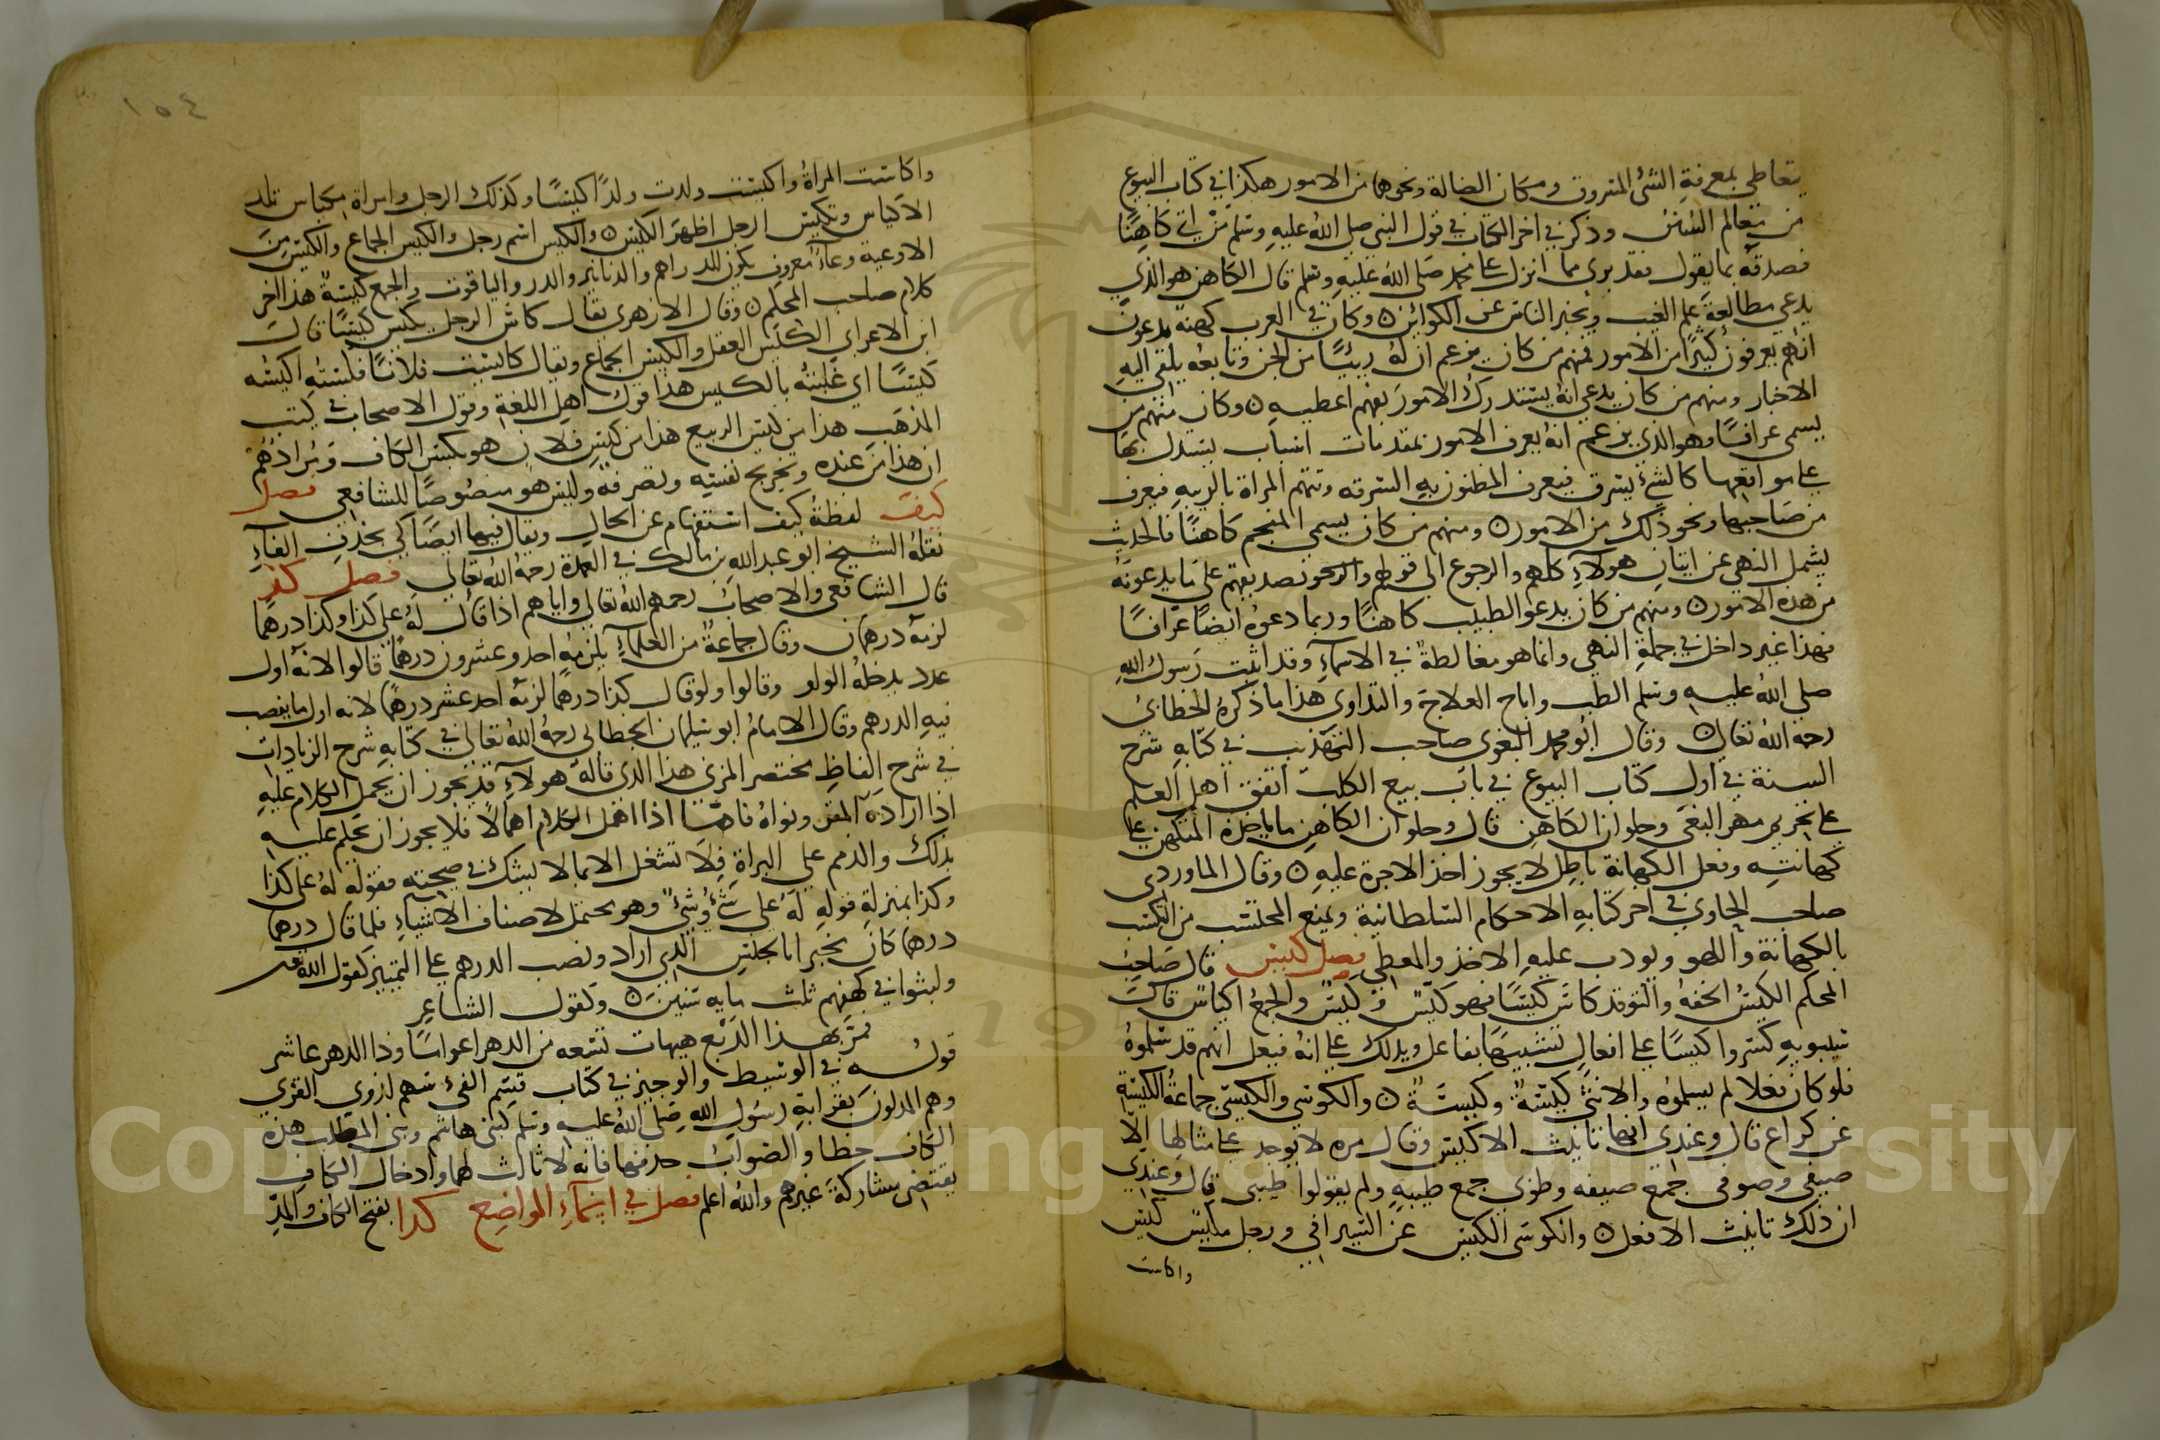 يتعاطى بمعرفة الشئ المسروق ومكان الضالة ونحوهما من الامور هكذا في كتاب البيوع
من معالم السنن وذكر في اخر الكتاب في قول النبي صلى الله عليه وسلم من اتى كاهنا
فصدقه بما يقول فقد برئ مما انزل على محمد صلى الله عليه وسلم قال الكاهن هو الذي
يدعي مطالعة علم الغيب ويخبر الناس عن الكوائن ه وكان في العرب كهنة يدعون
انهم يعرفون كثيرا من الامور فمنهم من كان يزعم ان له رئيا من الجن وتابعه يلقي اليه
الاخبار ومنهم من كان يدعي انه يستدرك الامور بفهم اعطيه ه وكان منهم من
يسمى عرافا وهو الذي يزعم انه يعرف الامور بمقدمات اسباب يستدل بها
على مواقعها كالشئ يسرق فيعرف المظنون به السرقة وتتهم المراة بالريبة فيعرف
من صاحبها ونحو ذلك من الامور ه ومنهم من كان يسمي المنجم كاهنا فالحديث
يشمل النهي عن اتيان هولاء كلهم والرجوع الى قولهم وتصديقهم على ما يدعونه
من هذه الامور ه ومنهم من كان يدعو الطبيب كاهنا وربما دعوه ايضا عرافا
فهذا غير داخل في جملة النهي وانما هو مغالطة في الاسماء وقد اثبت رسول الله
صلى الله عليه وسلم الطب واباح العلاج والتداوى هذا ما ذكره الخطابي
رحمه الله تعالى ه وقال ابو محمد البغوى صاحب التهذيب في كتابه شرح
السنة في اول كتاب البيوع في باب بيع الكلب اتفق اهل العلم
على تحريم مهر البغي وحلوان الكاهن قال وحلوان الكاهن ما ياخذه المتكهن على
كهانته وفعل الكهانة باطل لا يجوز اخذ الاجرة عليه ه وقال الماوردي
صاحب الحاوي في اخر كتابه الاحكام السلطانية ويمنع المحتسب من التكسب
بالكهانة واللهو ويودب عليه الاخذ والمعطي فصل كيس قال صاحب
المحكم الكيس الخفة والتوقد كاس كيسا فهو كيس وكيس والجمع اكياس قال
سيبويه كسروا كيسا على افعال تشبيها بفاعل ويدلك على انه فيعل انهم قد سلموه
فلو كان فعلا لم يسلموه والانثى كيسة وكيسة ه والكوسى والكيسى جماعة الكيسة
عن كراع قال وعندي انها تانيث الاكيس وقال مرة لا يوجد على مثالها الا
ضيقى وضوقى جمع ضيقة وطوبى جمع طيبة ولم يقولوا طيبى قال وعندي
ان ذلك تانيث الافعل ه والكوسى الكيس عن السيرافي ورجل مكيس كيس
واكاست
١٥٤
واكاست المراة واكيست ولدت ولدا كيسا وكذلك الرجل وامراة مكياس تلد
الاكياس وتكيس الرجل اظهر الكيس ه والكيس اسم رجل والكيس الجماع والكيس من
الاوعية وعاء معروف يكون للدراهم والدنانير والدر والياقوت والجمع كيسة هذا اخر
كلام صاحب المحكم ه وقال الازهرى يقال كاس الرجل يكيس كيسا قال
ابن الاعرابي الكيس العقل والكيس الجماع ويقال كايست فلانا فكسته اكيسه
كيسا اي غلبته بالكيس هذا قول اهل اللغة وقول الاصحاب في كتب
المذهب هذا من كيس الربيع هذا من كيس فلان هو بكسر الكاف ومرادهم
ان هذا من عنده وتخريج نفسه وتصرفه وليس هو منصوصا للشافعي فصل
كيف لفظة كيف استفهام عن الحال ويقال فيها ايضا كي بحذف الفاء
نقله الشيخ ابو عبد الله بن مالك في العمدة رحمه الله تعالى فصل كذ
قال الشافعي والاصحاب رحمهم الله تعالى واياهم اذا قال له على كذا وكذا درهما
لزمه درهمان وقال جماعة من العلماء يلزمه احد وعشرون درهما قالوا لانه اول
عدد يدخله الواو وقالوا ولو قال كذا درهما لزمه احد عشر درهما لانه اول ما ينصب
فيه الدرهم وقال الامام ابو سليمان الخطابي رحمه الله تعالى في كتابه شرح الزيادات
في شرح الفاظ مختصر المزني هذا الذي قاله هولاء قد يجوز ان يحمل الكلام عليه
اذا اراده المقر ونواه فاما اذا اهمل الكلام اهمالا فلا يجوز ان يحكم عليه
بذلك والذمم على البراة فلا تشغل الا بما لا يشك في صحته فقوله له على كذا
وكذا بمنزلة قوله له على شئ وشئ وهو محتمل لاصناف الاشياء فلما قال درهما
درهما كان مخبرا بالجنس الذي اراد ونصب الدرهم على التمييز كقول الله تعالى
ولبثوا في كهفهم ثلث مايه سنين ه وكقول الشاعر
قمر بهذا الربع هيهات تسعه من الدهر اعواما وذا الدهر عاشر
قوله في الوسيط والوجيز في كتاب قسم الفئ سهم لذوي القربى
وهم المدلون بقرابة رسول الله صلى الله عليه وسلم كبني هاشم وبني المطلب هذه
الكاف خطا والصواب حذفها فانه لا ثالث لهما وادخال الكاف
يقتضى مشاركة غيرهم والله اعلم فصل في اسماء المواضع كدا بفتح الكاف والمد
Copyright © King Saud University
1957